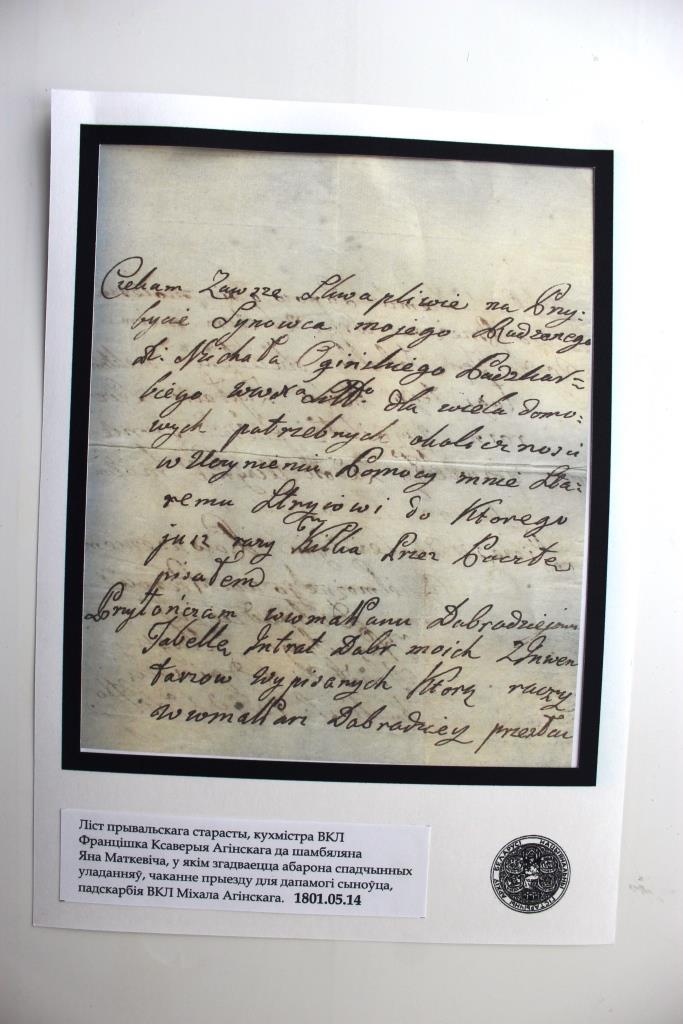 Czekam Zawsze Skwapliwie na Przy:
bycie Synowca mojego Rodzonego
Michała Ogińskiego Podskar=
biego dla wiela domo:
wych potrzebnych okoliczności
w Uczynieniu Pomocy mnie Sta:
remu Stryiowi do Ktorego
juz razy Kilka Przez Pocztę
pisałem
Przyłończam wwmsPanu Dobrodziejowi
Tabellę Intrat Dobr moich zInwen
tarzow Wypisanych Ktorą raczy
wwmsPan Dobrodziey
Ліст прывальскага старасты, кухмістра ВКЛ
Францішка Ксаверыя Агінскага да шамбяляна
Яна Маткевіча, у якім згадваецца абарона спадчынных
уладанняў, чаканне прыезду для дапамогі сыноўца,
падскарбія ВКЛ Міхала Агінскага. 1801.05.14